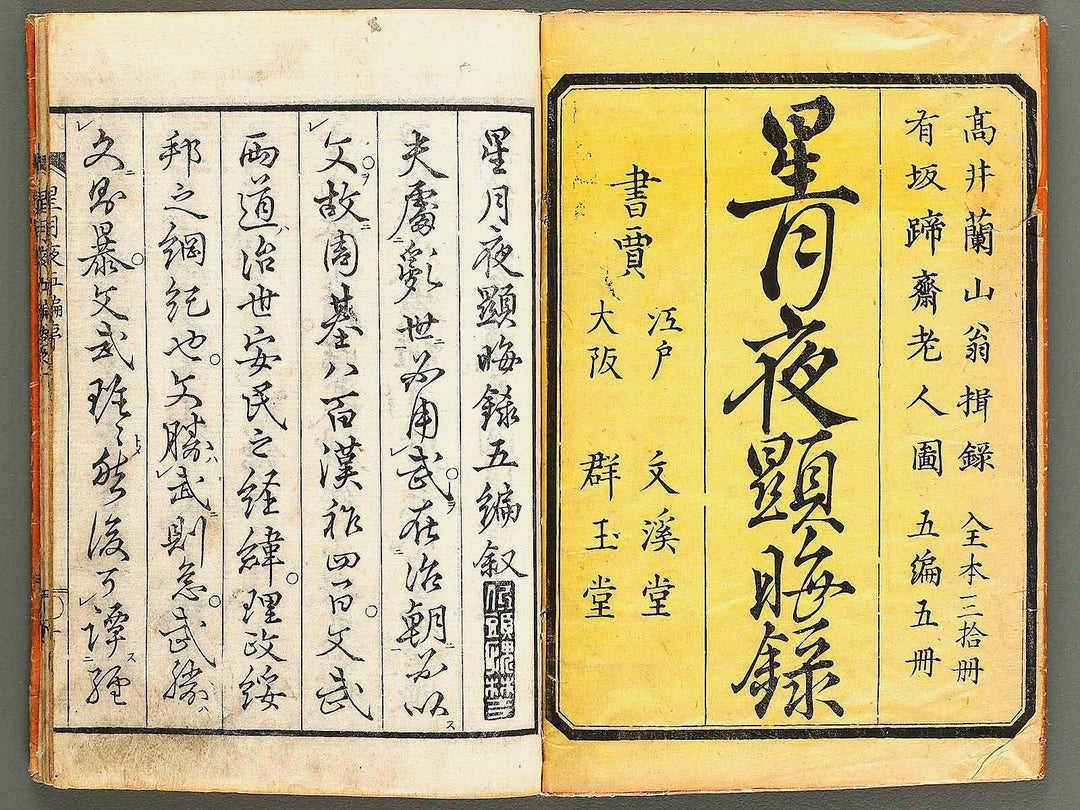 髙井蘭山翁揖録 全本三拾冊
有坂蹄齋老人圖 五編五冊
星月夜顕晦録
書賈
江戸 文溪堂
大阪 群玉堂
星月夜顕晦録五編叙
夫處亂世必用武在治朝必以
文故周基八百漢祚四百文武
両道治世安民之経緯理政綏
邦之綱紀也文勝武則怠武勝
文則暴文武雖〻然後可譚經